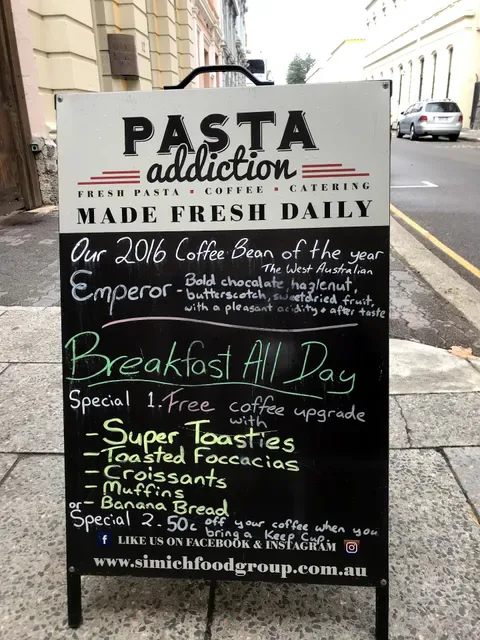 PASTA
addiction
FRESH PASTA • COFFEE • CATERING
MADE FRESH DAILY
Our 2016 Coffee Bean of the year
The West Australian
Emperor - Bold chocalate, hazlenut,
butterscotch, sweetdried fruit,
with a pleasant acidity + after taste
Breakfast All Day
Special 1. Free coffee upgrade
with
- Super Toasties
- Toasted Foccacias
- Croissants
- Muffins
or - Banana Bread
Special 2 - 50c off your coffee when you
bring a Keep Cup.
LIKE US ON FACEBOOK & INSTAGRAM
www.simichfoodgroup.com.au